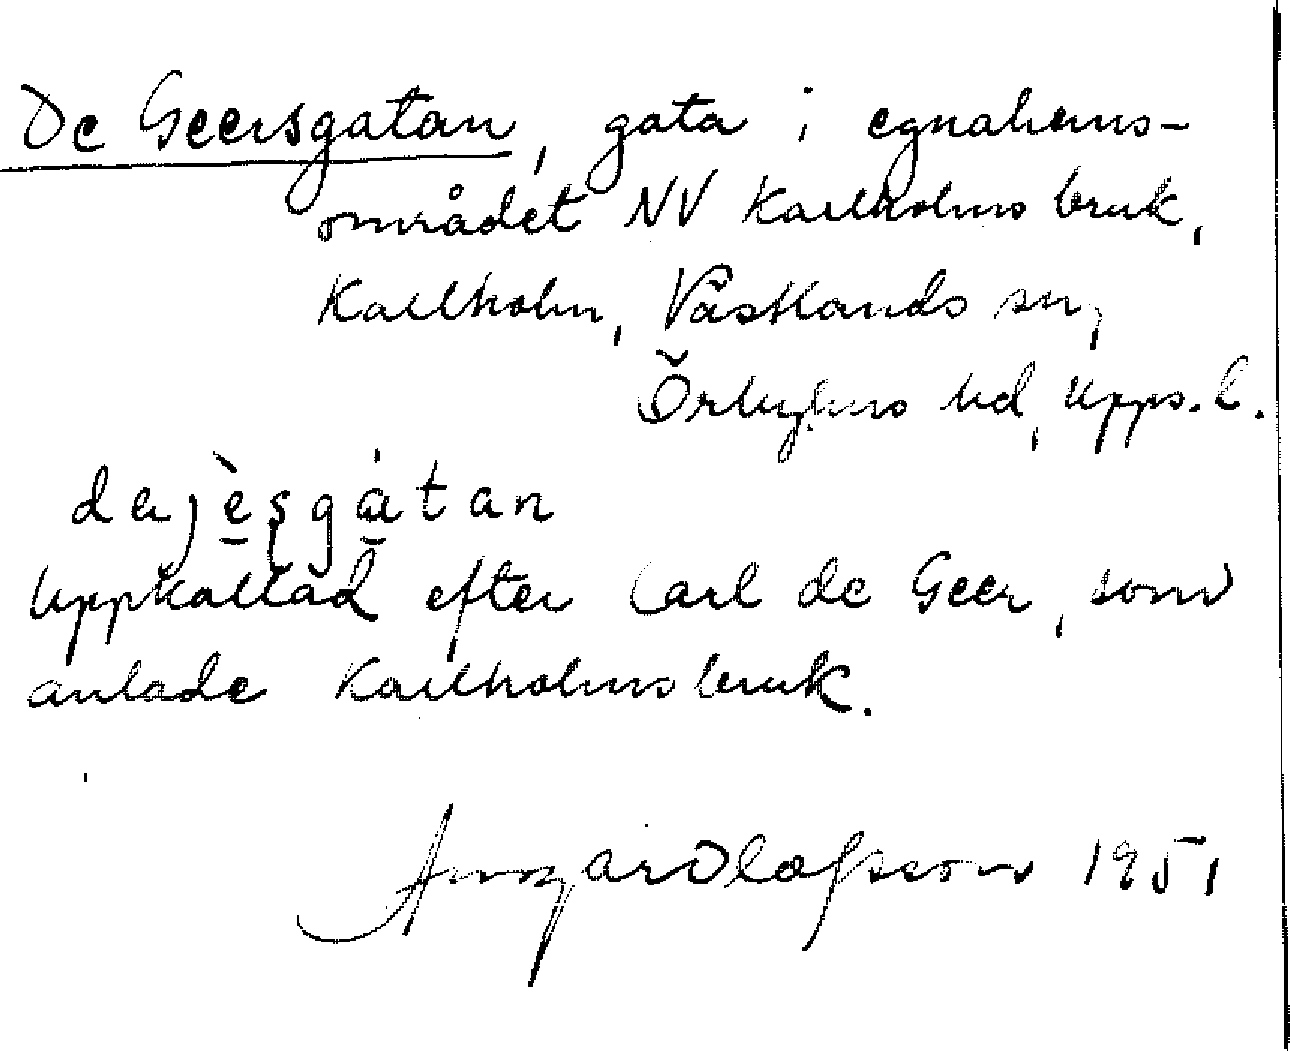 De Geersgatan, gata i egnahems-
området NV Karlholms bruk,
Karlholm, Västlands sn,
Örbyhus hd, Upps. l.
Uppkallad efter Carl de Geer, som
anlade Karlholms bruk.
Olofsson 1951